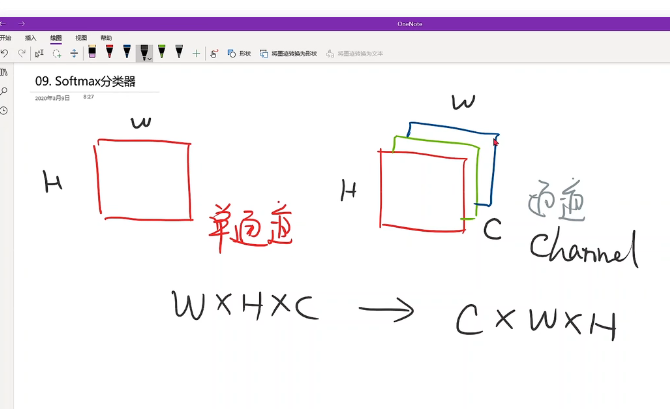 OneNote
开始 插入 绘图 视图 帮助
形状 将墨迹转换为形状 将墨迹转换为文本
09. Softmax分类器
2020年8月9日 8:27
W
H
单通道
W
H
C
通道
Channel
W×H×C → C×W×H